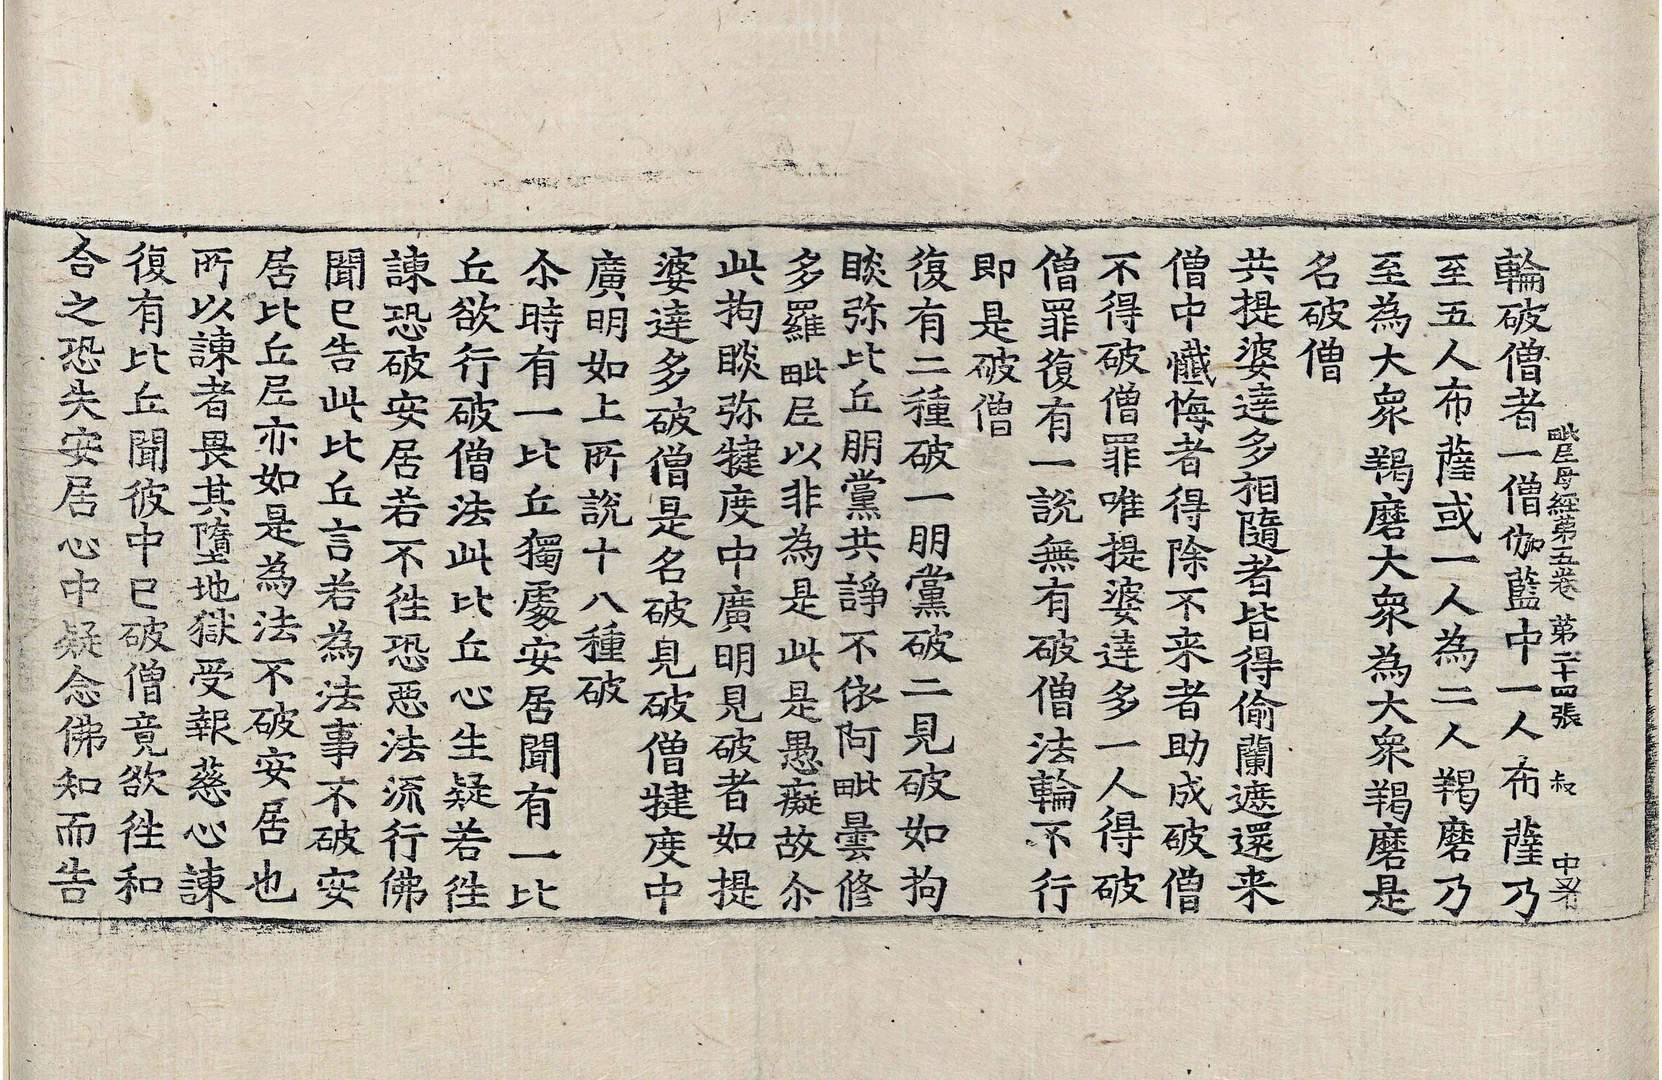 毗尼母經第五卷 第二十四張 叔 中
輪破僧者一僧伽藍中一人布薩乃
至五人布薩或一人為二人羯磨乃
至為大衆羯磨大衆為大衆羯磨是
名破僧
共提婆達多相隨者皆得偷蘭遮還来
僧中懺悔者得除不来者助成破僧
不得破僧罪唯提婆達多一人得破
僧罪復有一說無有破僧法輪不行
即是破僧
復有二種破一朋黨破二見破如拘
睒弥比丘朋黨共諍不依阿毗曇修
多羅毗尼以非為是此是愚癡故尒
此拘睒弥犍度中廣明見破者如提
婆達多破僧是名破見破僧犍度中
廣明如上所說十八種破
尒時有一比丘獨處安居聞有一比
丘欲行破僧法此比丘心生疑若徃
諫恐破安居若不徃恐惡法流行佛
聞已告此比丘言若為法事不破安
居比丘尼亦如是為法不破安居也
所以諫者畏其墮地獄受報慈心諫
復有比丘聞彼中已破僧竟欲徃和
合之恐失安居心中疑念佛知而告